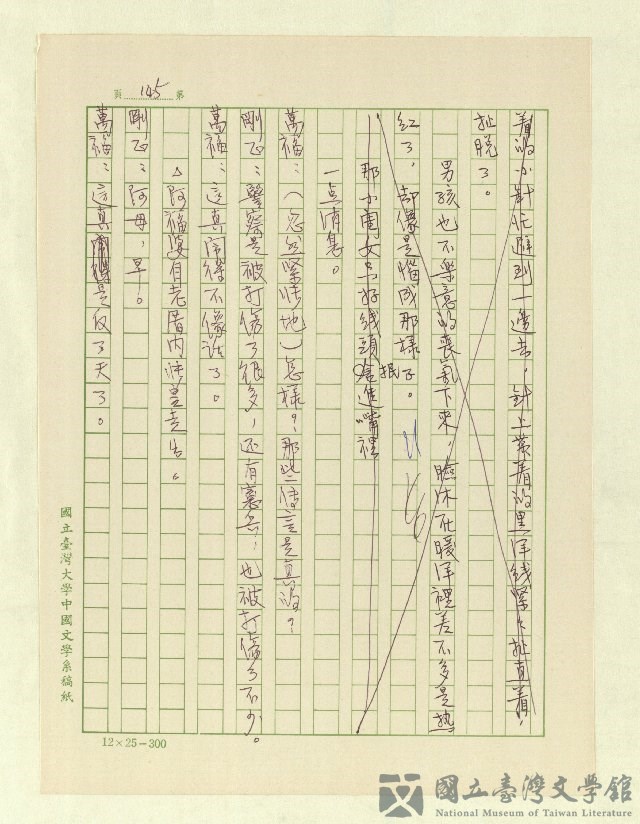 第 145 頁
着的小針忙避到一邊去，針上帶着的黑洋綫緊緊扯直着，
扯脫了。
男孩也不樂意的喪氣下來，臉休在暖洋裡差不多是熱
紅了，却像是惱成那樣子。
那小閨女只好綫頭抿進嘴裡
一点消息。
萬福：（忽然緊張地）怎樣？那些傳言是真的？
剛正：警察是被打傷了很多，还有憲兵，也被打傷了不少。
萬福：這真鬧得不像話了。
△阿福婆自老厝內張羞走出。
剛正：阿母，早。
萬福：這真是反了天了。
國立臺灣大學中國文學系稿紙
12×25=300
國立臺灣文學館
National Museum of Taiwan Literature